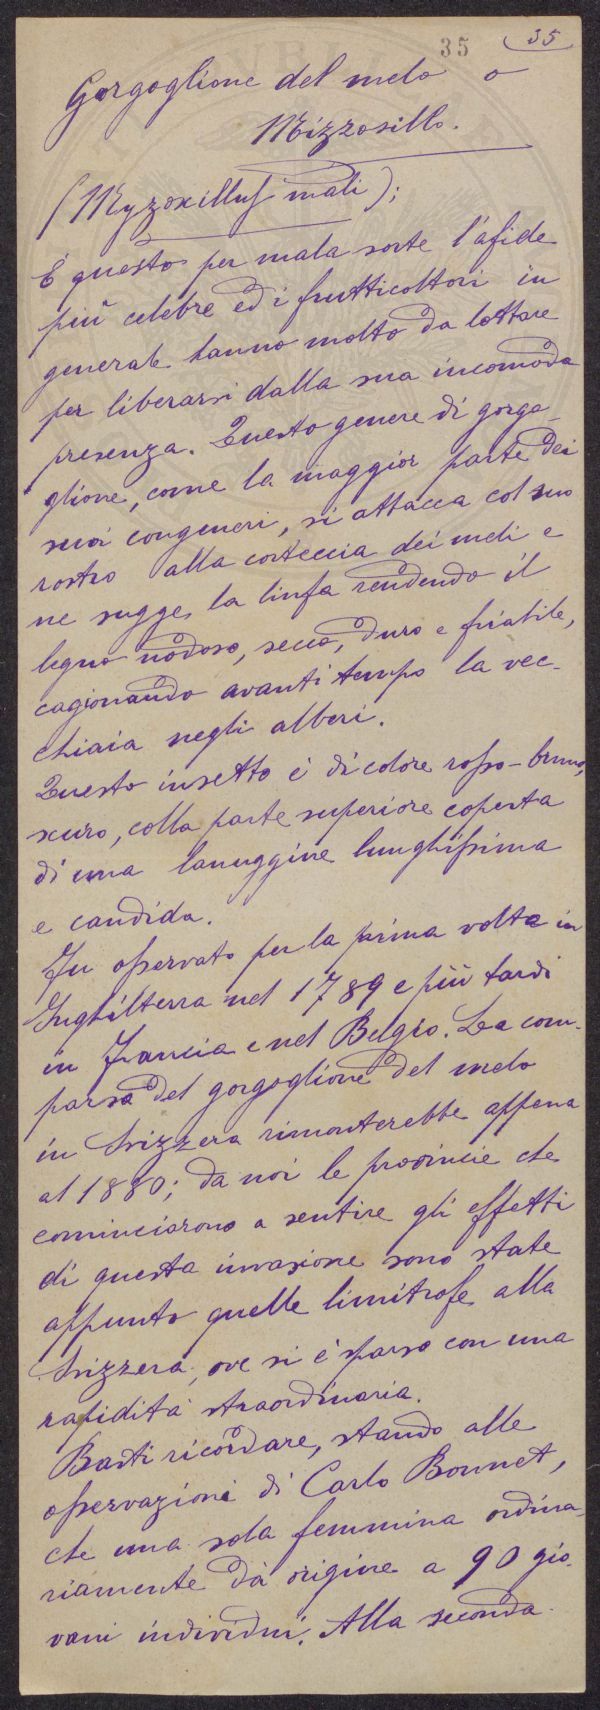 35 35
Gorgoglione del melo o
Mizzosillo.
(Myzoxillus mali);
È questo per mala sorte l'afide
più celebre ed i frutticoltori in
generale hanno molto da lottare
per liberarsi dalla sua incomoda
presenza. Questo genere di gorgo-
glione, come la maggior parte dei
suoi congeneri, si attacca col suo
rostro alla corteccia dei meli e
ne sugge la linfa rendendo il
legno nodoso, secco, duro e friabile,
cagionando avanti tempo la vec-
chiaia negli alberi.
Questo insetto è di colore rosso-bruno,
scuro, colla parte superiore coperta
di una lanuggine lunghissima
e candida.
Fu osservato per la prima volta in
Inghilterra nel 1789 e più tardi
in Francia e nel Belgio. La com-
parsa del gorgoglione del melo
in Svizzera rimonterebbe appena
al 1880; da noi le provincie che
cominciarono a sentire gli effetti
di questa invasione sono state
appunto quelle limitrofe alla
Svizzera, ove si è sparso con una
rapidità straordinaria.
Basti ricordare, stando alle
osservazioni di Carlo Bonnet,
che una sola femmina ordina-
riamente dà origine a 90 gio-
vani individui. Alla seconda